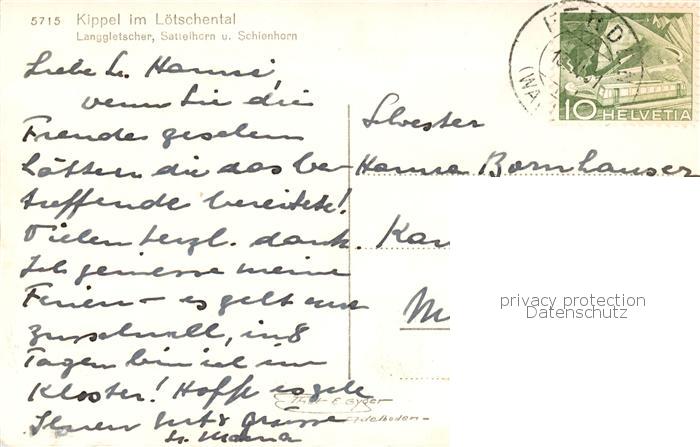 5715 Kippel im Lötschental
Langgletscher, Sattelhorn u. Schienhorn
10 HELVETIA
Liebe Sr. Hanna,
wenn Sie die
Freude gesehen
hätten die das be-
treffende bereitete!
Vielen herzl. dank.
Ich geniesse meine
Ferien – es geht nur
zu schnell, in 8
Tagen bin ich im
Kloster! Hoffe es geh
Ihnen gut & Grüsse
Sr. Maria
Schwester
Hanna Bornhauser
Kan
M
privacy protection
Datenschutz
Phot. E. Gyger
Adelboden